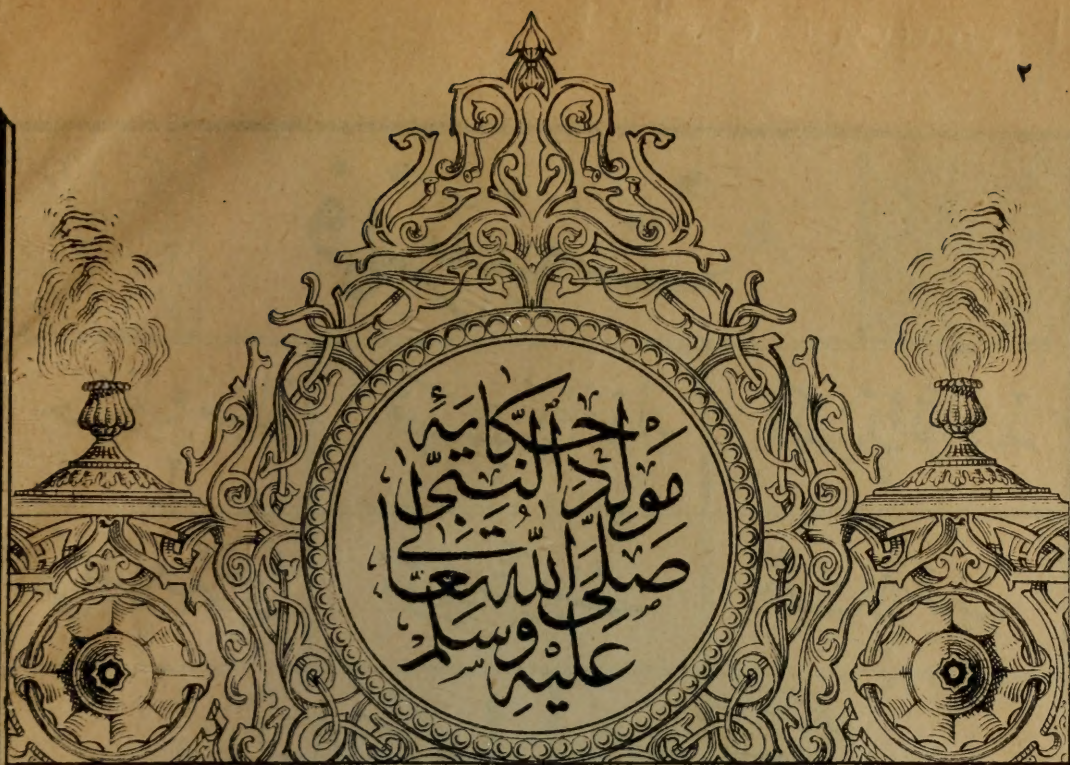 ٢
حكايهٔ
مولد النبى
صلى الله تعالى
عليه وسلم